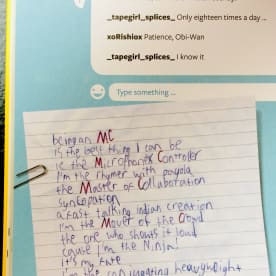 _tapegirl_splices_ Only eighteen times a day ...
xoRishiox Patience, Obi-Wan
_tapegirl_splices_ I know it
Type something ...
being an MC
is the best thing I can be
ie the Microphones Controller
I'm the rhymer with payola
the Master of Collaboration
synkopation
a fast talking indian creation
I'm the Mover of the Crowd
the one who shouts it loud
cause I'm the Ninja
it's my fate
I'm the conjugating heavyweight